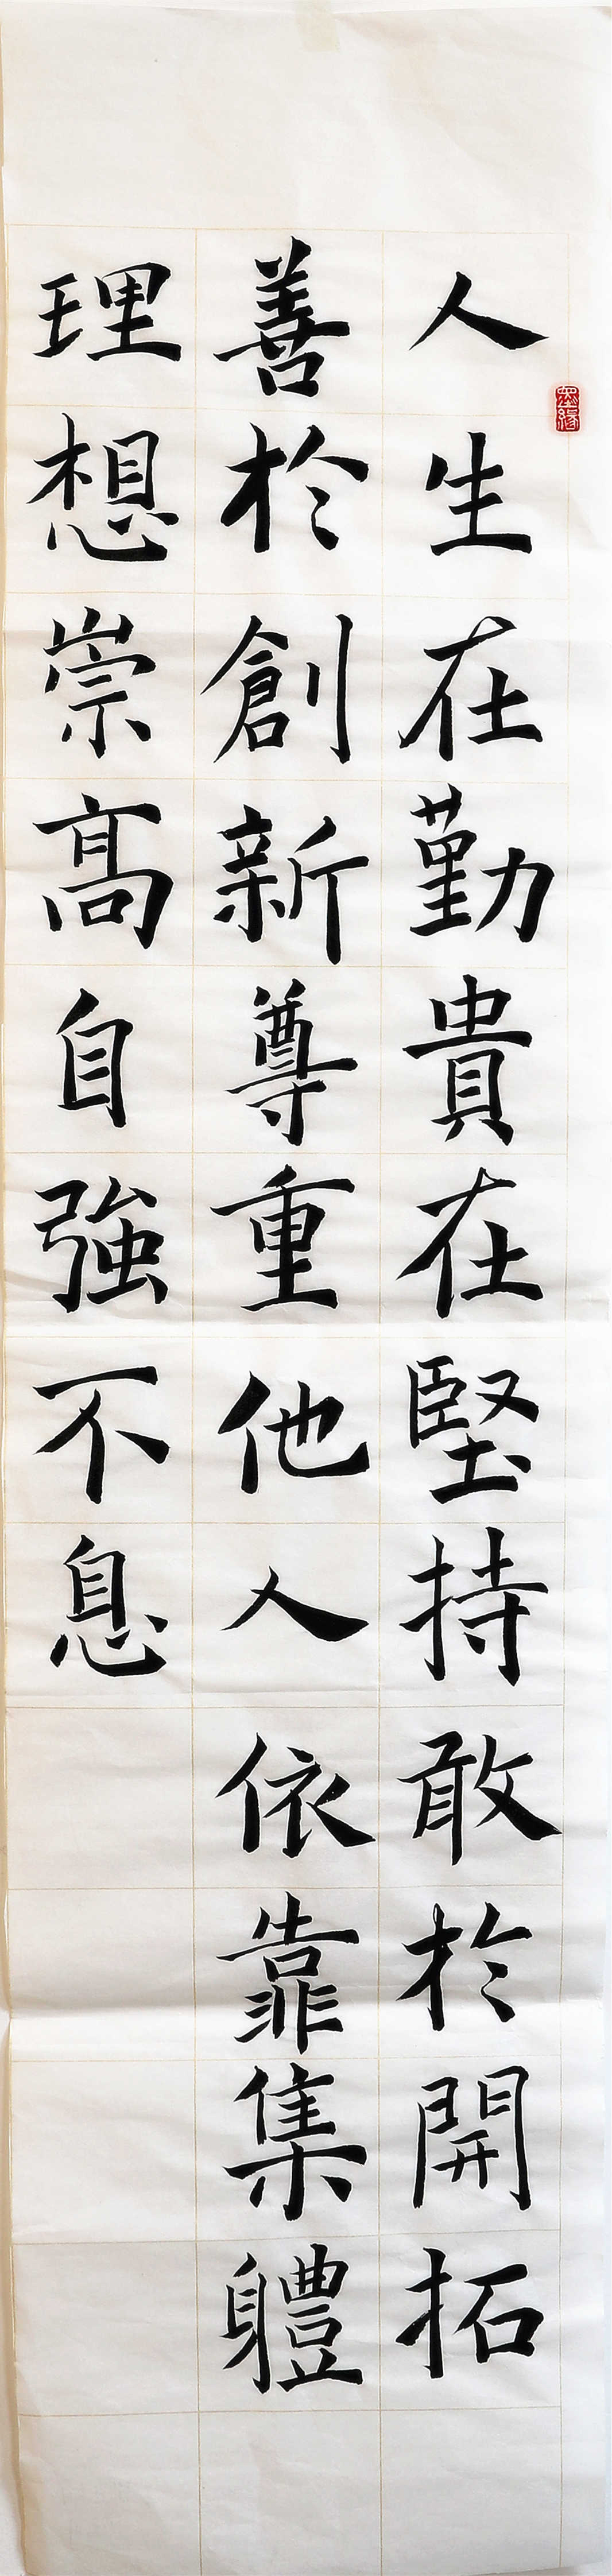 人生在勤貴在堅持敢於開拓
善於創新尊重他人依靠集軆
理想崇髙自強不息
墨緣